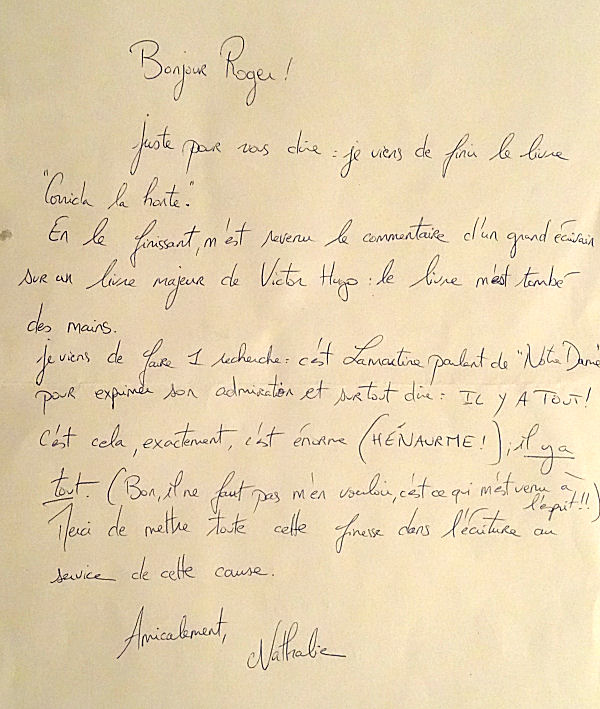 Bonjour Roger !
Juste pour vous dire : je viens de finir le livre
"Corrida la honte".
En le finissant, m'est revenu le commentaire d'un grand écrivain
sur un livre majeur de Victor Hugo : le livre m'est tombé
des mains.
Je viens de faire 1 recherche : c'est Lamartine parlant de "Notre Dame"
pour exprimer son admiration et surtout dire : IL Y A TOUT !
C'est cela, exactement, c'est énorme (HÉNAURME !) ; il y a
tout. (Bon, il ne faut pas m'en vouloir, c'est ce qui m'est venu à
l'esprit !!)
Merci de mettre toute cette finesse dans l'écriture au
service de cette cause.
Amicalement,
Nathalie